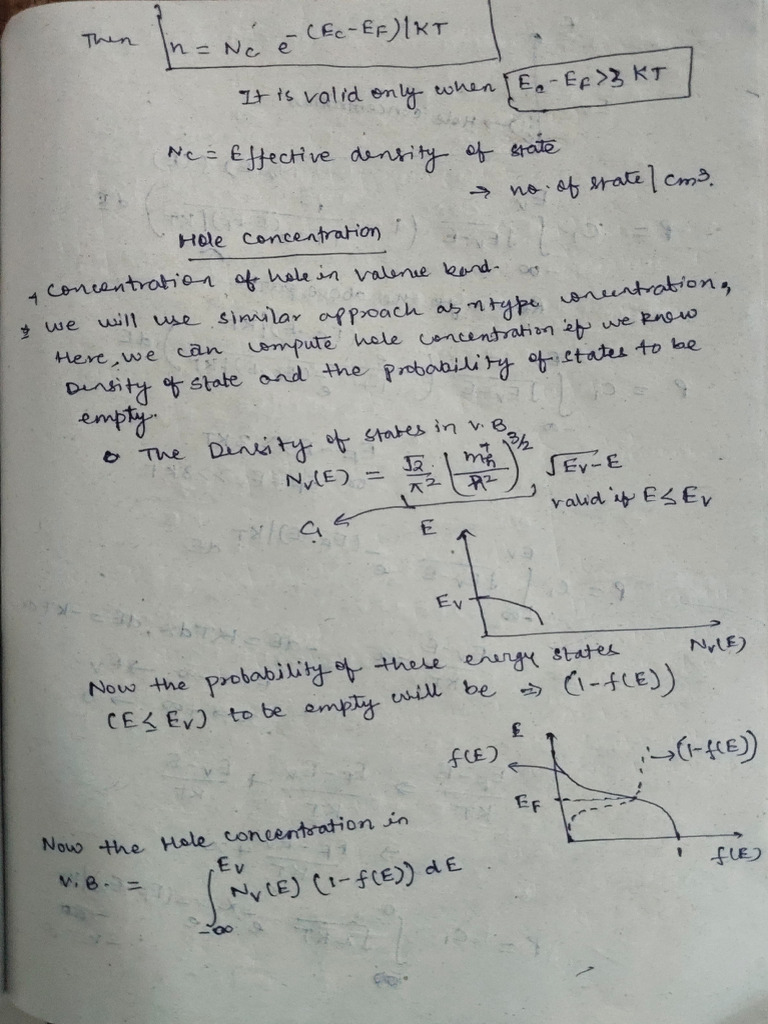 Then n = Nc e^-(Ec-EF)/KT
It is valid only when Ec-EF>3 KT
Nc = Effective density of state
→ no. of state / cm3.
Hole concentration
concentration of hole in valence band.
* we will use similar approach as n type concentration,
Here, we can compute hole concentration if we know
Density of state and the probability of states to be
empty.
o The Density of states in V.B
Nv(E) = √2/π² (m*h/ħ²)^3/2 √Ev-E
valid if E≤Ev
C1
E
Ev
Nv(E)
Now the probability of these energy states
(E≤Ev) to be empty will be ⇒ (1-f(E))
E
f(E)
→(1-f(E))
EF
1
f(E)
Now the Hole concentration in
V.B. = ∫_-∞^Ev Nv(E) (1-f(E)) dE